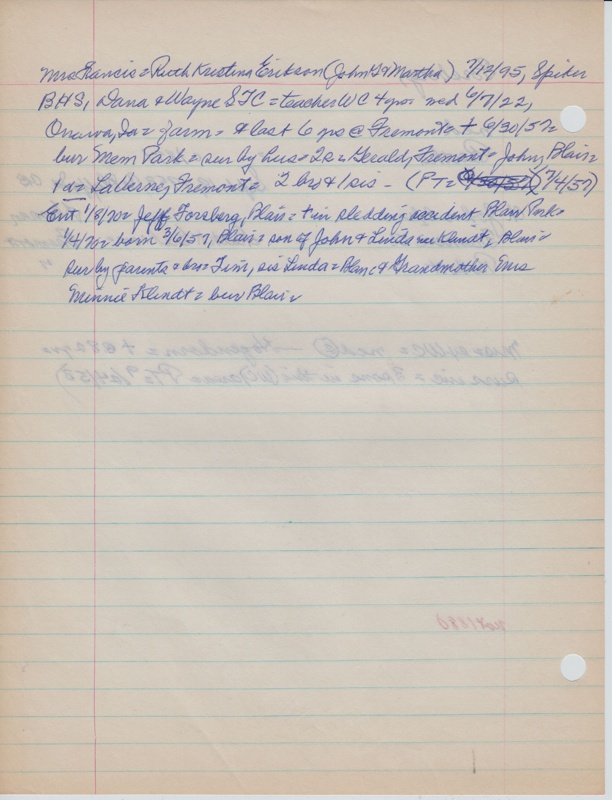 Mrs Francis = Ruth Kristina Erikson (John G & Martha) 7/12/95, Spiker
BHS, Dana & Wayne STC = teacher WC 4 yrs = wed 6/7/22,
Onawa, Ia = farm = & last 6 yrs @ Fremont = + 6/30/57 =
bur Mem Park = sur by hus = 2 s = Gerald, Fremont = John, Blair =
1 da = LaVerne, Fremont = 2 br & 1 sis - (PT = 7/4/57)
Ent 1/8/70 = Jeff Forsberg, Blair = + in sledding accident Blair Park =
1/4/70 = born 3/6/57, Blair = son of John & Linda nee Klindt, Blair =
sur by parents & br = Tim, sis Linda = Blair, & Grandmother Mrs
Minnie Klindt = bur Blair =